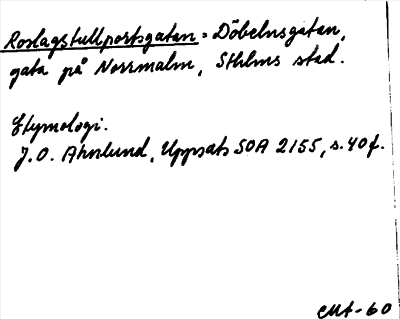 Roslagstullportsgatan = Döbelnsgatan,
gata på Norrmalm, Sthlms stad.
Etymologi.
J.O. Ahnlund, Uppsats SOA 2155, s. 40 f.
MA-60